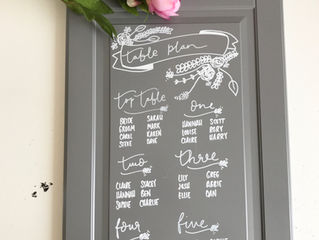 table plan
top table
BRIDE SARAH
GROOM MARK
CAROL KAREN
STEVE DAVE
one
HANNAH SCOTT
LOUISE RORY
CLAIRE HARRY
two
CLAIRE STACEY
HANNAH BEN
SOPHIE CHARLIE
three
LILY GREG
JOSH ABBIE
ELLIE DAN
four
five